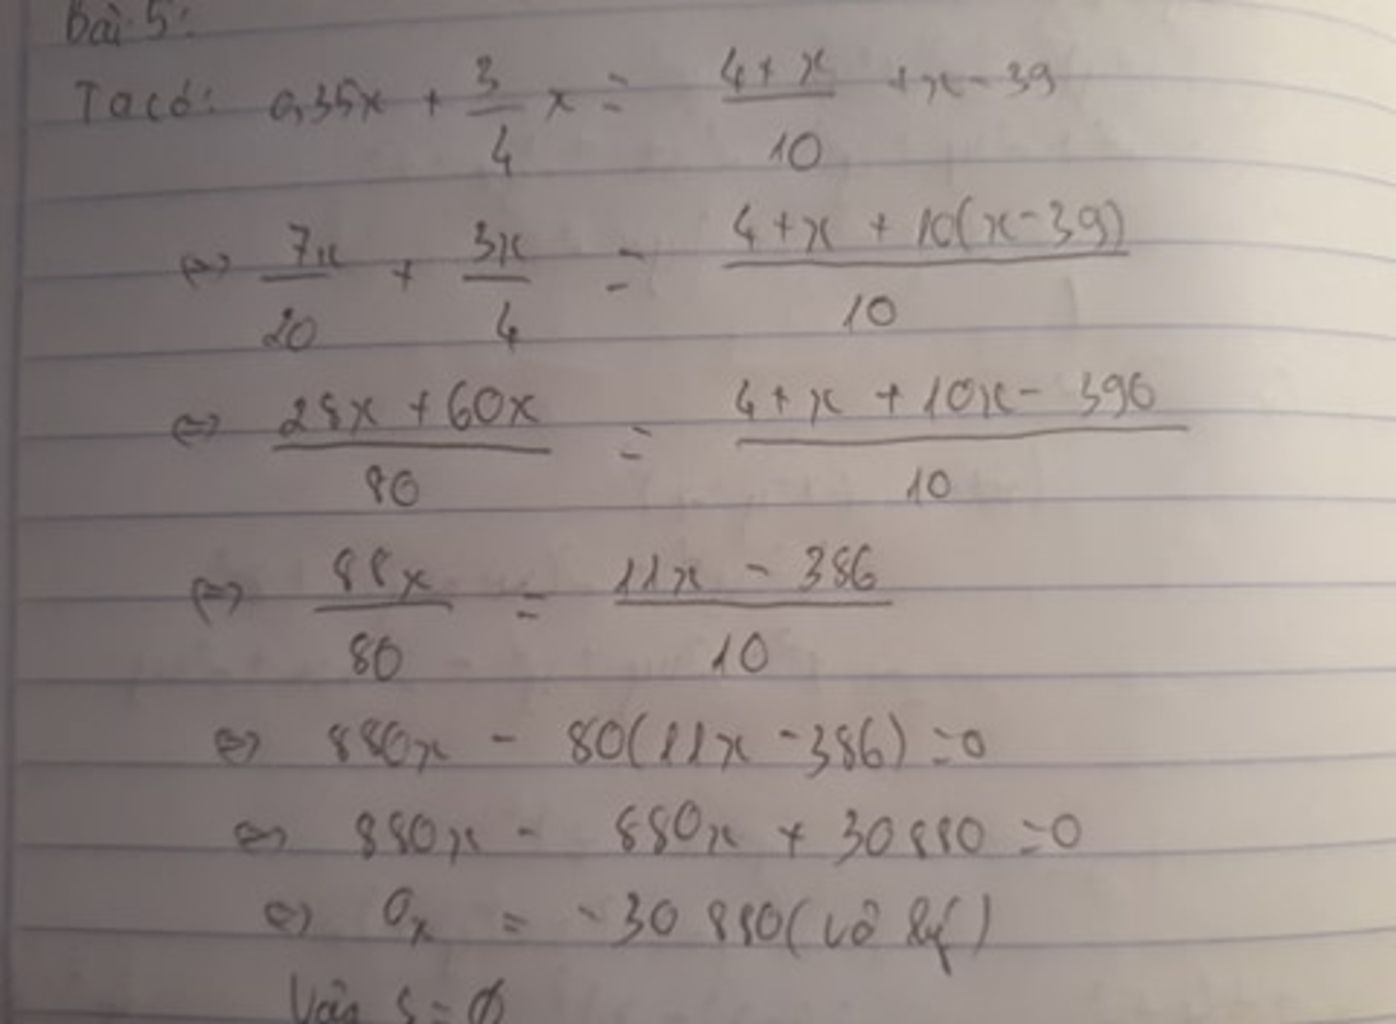 Bài 5:
Ta có: 0,35x + 3/4 x = (4 + x)/10 + x - 39
<=> 7x/20 + 3x/4 = (4 + x + 10(x - 39))/10
<=> (28x + 60x)/80 = (4 + x + 10x - 390)/10
<=> 88x/80 = (11x - 386)/10
<=> 880x - 80(11x - 386) = 0
<=> 880x - 880x + 30880 = 0
<=> 0x = -30 880 (vô lý)
Vậy S = ∅